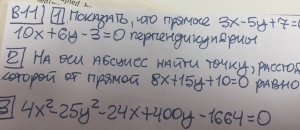 В-11 1 Показать, что прямые 3x-5y+7=0
10x+6y-3=0 перпендикулярны
2 На оси абсцисс найти точку, расстоя
которой от прямой 8x+15y+10=0 равно
3 4x²-25y²-24x+400y-1664=0